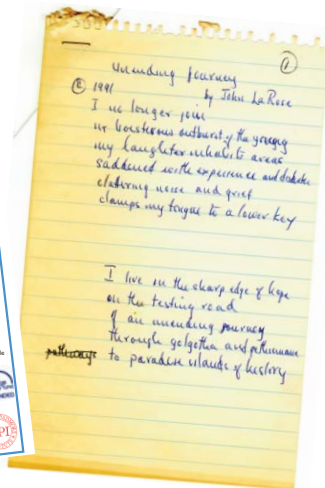 ①
Unending Journey
© 1991 by John La Rose
I no longer join
in boisterous outburst of the young
my laughter inhabits areas
saddened with experience and
clattering noise and grief
clamps my tongue to a lower key
I live on the sharp edge of hope
on the testing road
of an unending journey
through golgotha and
to paradise islands of history